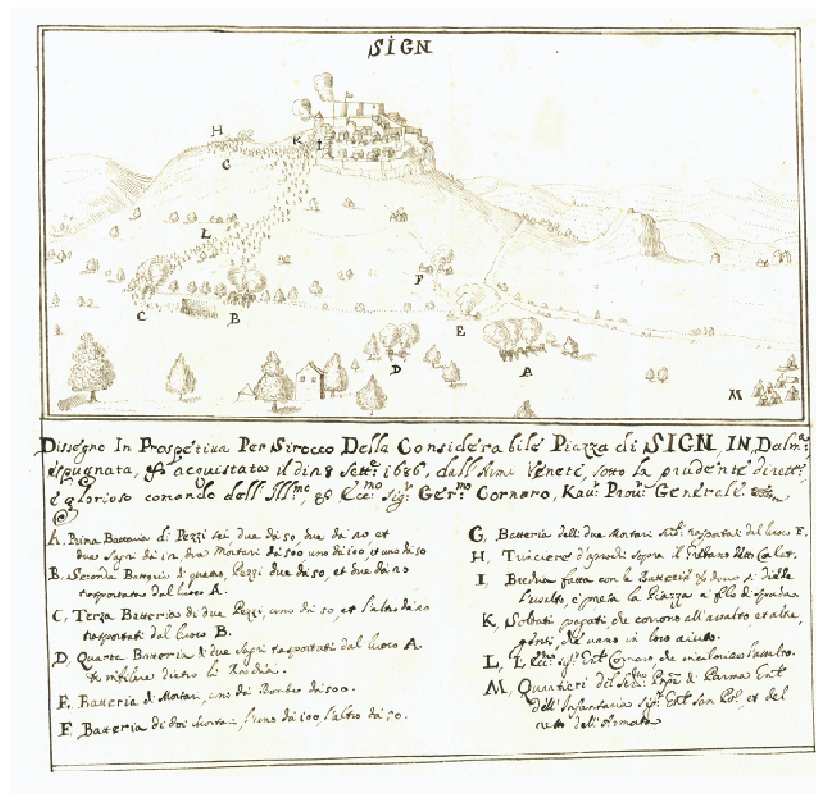 SIGN
H
G
K
L
F
C
B
E
D
A
M
Dissegno In Prospetiva Per Sirocco Della Considerabile Piazza di SIGN, IN Dalm.a
espugnata, et acquistata il di 28 Sett.e 1686, dall' Armi Venete, sotto la prudente dirett.e
è glorioso comando dell' Ill.mo, & Ecc.mo Sig.r Ger.mo Cornaro, Kau.r Prou.r Generale
A. Prima Batteria di Pezzi sei, due da 50, due da 20 et
due Sagri da 12, due Mortari da 500 uno da 100, et uno da 50
B. Seconda Batteria di quattro Pezzi due da 50, et due da 20
trasportata dal luoco A.
C, Terza Batteria di due Pezzi, uno da 50, et l'altro da 20
trasportati dal luoco B.
D, Quarta Batteria di due Sagri trasportati dal luoco A.
dietro la
E, Batteria di Mortari, uno da Bombe da 500.
F, Batteria di doi Mortari, l'uno da 100, l'altro da 50.
G, Batteria delli due Mortari trasportati dal luoco F.
H, Trinciere sopra il detto
I, Brechia fatta con le Batterie, et dove si diede
l'assalto, e presa la Piazza a filo di spada
K, Soldati pagati che corrono all'assalto et altre
genti, che vanno in loro aiuto.
L, L'Ecc.mo Sig.r Cornaro che l'assalto.
M, Quartieri del Ser.mo Pnpe di Parma
dell' Infantaria Sig.r San Pol, et del
resto dell' Armata